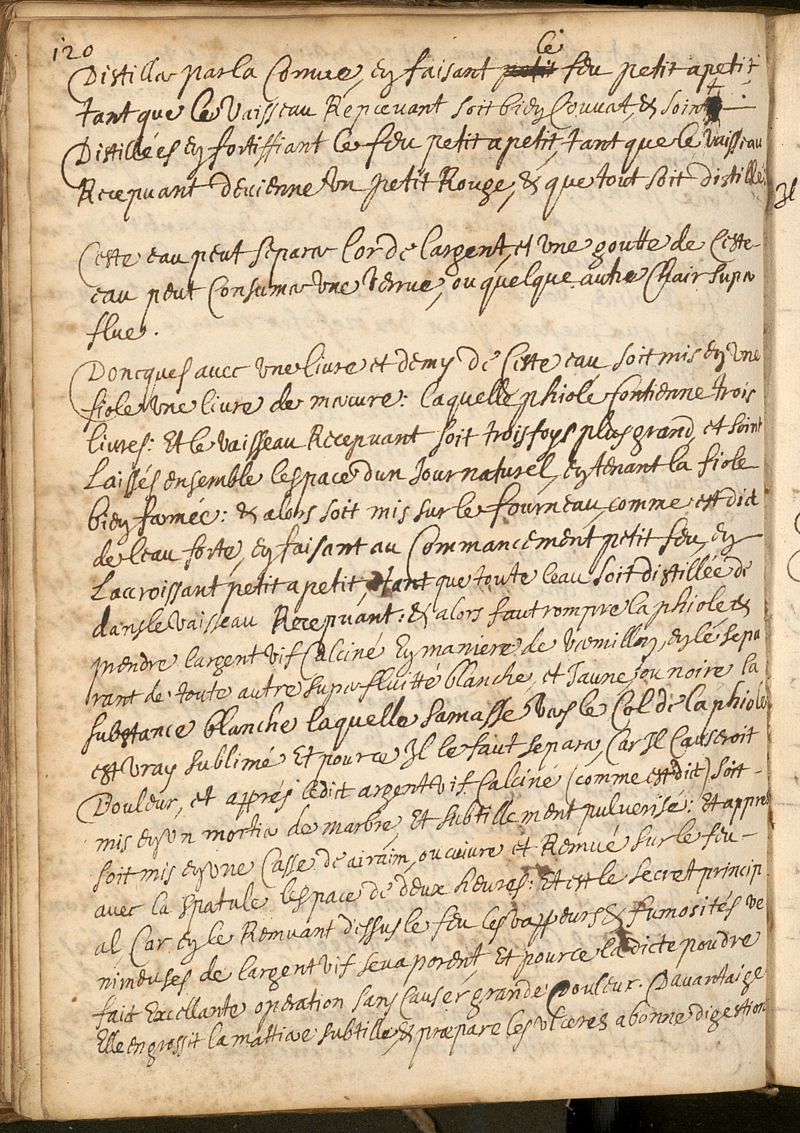 120
Distiller par la Cornue, en faisant petit le feu petit apetit
tant que le vaisseau Recepvant soit bien Couvert, & soint
Distillées en fortiffiant le feu petit apetit, tant que le vaisseau
Recepvant devienne un petit Rouge, & que tout soit distillé.
Ceste eau peut separer lor de largent, et une goutte de Ceste
eau peut Consumer une verrue, ou quelque autre Chair super
flue.
Doncques avec une livre et demy de Ceste eau soit mis en une
fiole une livre de mercure: laquelle phiole contienne trois
livres: Et le vaisseau Recepvant soit trois foys plus grand, et soint
Laissés ensemble lespace dun Jour naturel, en tenant la fiole
bien fermée: & alors soit mis sur le fourneau, comme est dict
de leau forte, en faisant au Commancement petit feu, en
Lacroissant petit apetit, tant que toute leau soit distillée de
dans le vaisseau Recepvant: & alors faut rompre la phiole &
prendre largent vif Calciné En maniere de vermillon, en le sepa
rant de toute autre superfluitté blanche, et Jaune, ou noire la
substance blanche laquelle samasse vers le Col de la phiole
est vray sublimé Et pource Il le faut separer, Car Il Causeroit
Douleur, et apprés ledict argent vif Calciné (comme est dict) soit
mis en un mortier de marbre, Et subtillement pulverisé: Et appres
soit mis en une Casse de airaim, ou cuivre et Remué sur le feu
avec la spatule lespace de deux heures: Et est le secret princip
al Car en le Remuant dessus le feu les vappeurs & fumosités ve
nimeuses de largent vif sevaporent Et pource la dicte poudre
faict Excellante operation sans Causer grande Douleur. Davantaige
Elle engrossit la mattiere subtille, & præpare les ulceres a bonne digestion
Il